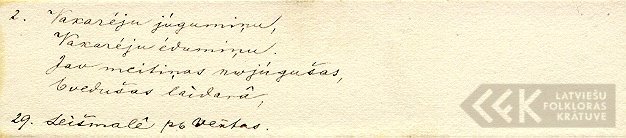 2. Vakarēju jūgumiņu,
Vakarēju ēdumiņu.
Jau meitiņas nojūgušas,
Ievedušas lāidarā,
29. Leišmalē pb
LATVIEŠU
FOLKLORAS
KRĀTUVE